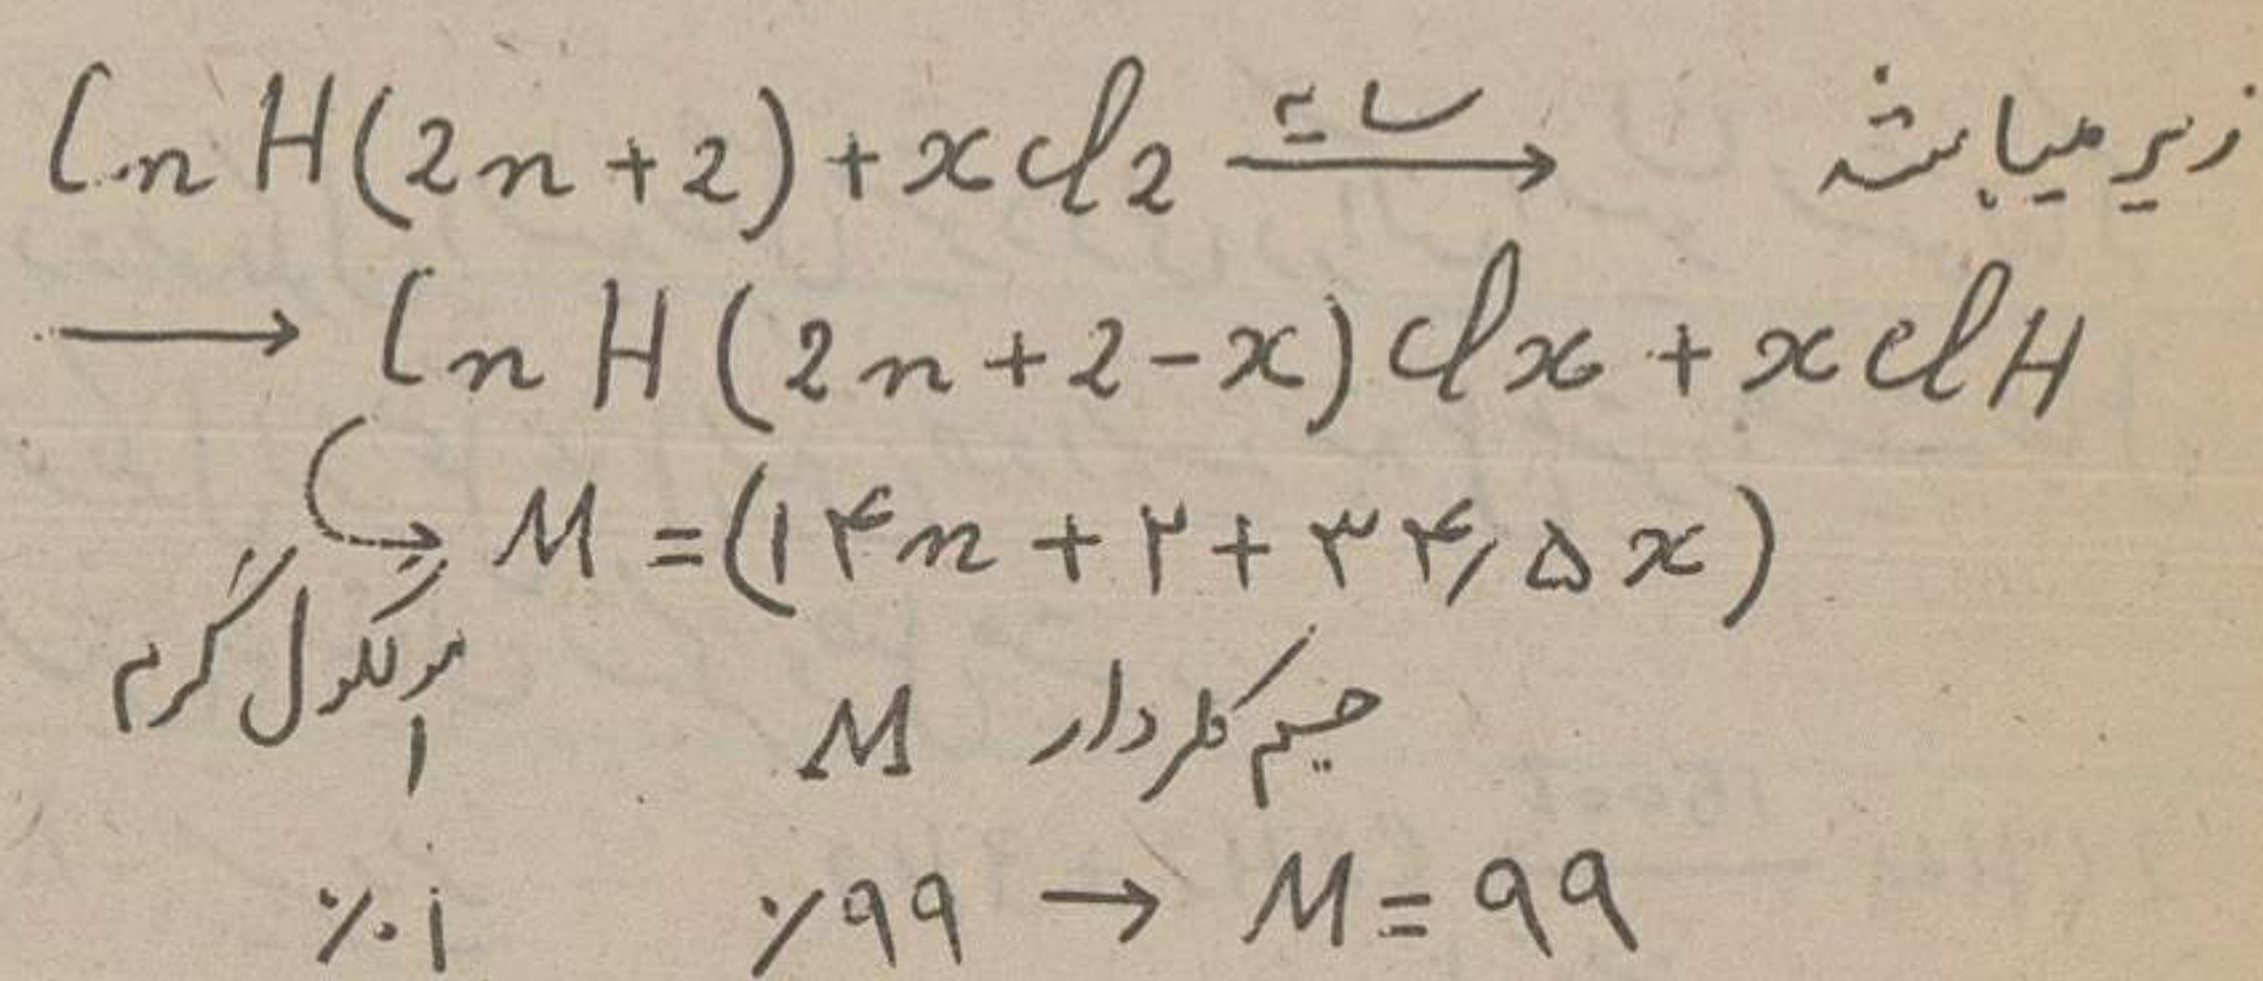 زیر میباشد CnH(2n+2)+xCl2 سایه →
→ CnH(2n+2-x)Clx + xClH
M = (۱۴n + ۲ + ۳۴,۵x)
مولکول گرم
جسم کلردار M ۱
٪۰۱ ٪۹۹ → M = ۹۹